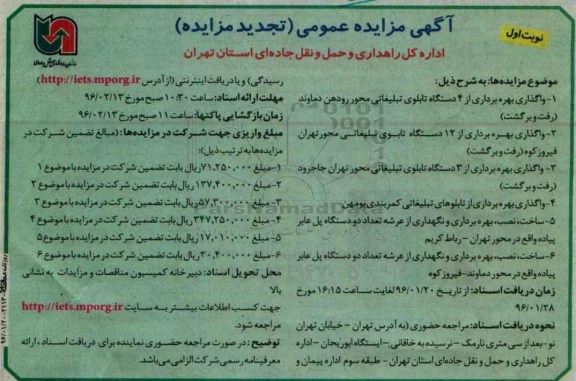 آگهی مزایده عمومی (تجدید مزایده)
نوبت اول
اداره کل راهداری و حمل و نقل جاده‌ای استان تهران
موضوع مزایده‌ها: به شرح ذیل:
۱- واگذاری بهره برداری از ۴ دستگاه تابلوی تبلیغاتی محور رودهن دماوند
(رفت و برگشت)
۲- واگذاری بهره برداری از ۱۲ دستگاه تابوی تبلیغاتی محور تهران
فیروزکوه (رفت و برگشت)
۳- واگذاری بهره برداری از ۳ دستگاه تابلوی تبلیغاتی محور تهران جاجرود
(رفت و برگشت)
۴- واگذاری بهره برداری از تابلوهای تبلیغاتی کمربندی بومهن
۵- ساخت، نصب، بهره برداری و نگهداری از عرشه تعداد دو دستگاه پل عابر
پیاده واقع در محور تهران - رباط کریم
۶- ساخت، نصب، بهره برداری و نگهداری از عرشه تعداد دو دستگاه پل عابر
پیاده واقع در محور دماوند- فیروزکوه
زمان دریافت اسناد: از تاریخ ۹۶/۰۱/۲۰ لغایت ساعت ۱۶:۱۵ مورخ
۹۶/۰۱/۲۸
نحوه دریافت اسناد: مراجعه حضوری (به آدرس تهران - خیابان تهران
نو- بعد از سی متری نارمک - نرسیده به خاقانی - ایستگاه ابوریحان - اداره
کل راهداری و حمل و نقل جاده‌ای استان تهران - طبقه سوم اداره پیمان و
رسیدگی) و یا دریافت اینترنتی (از آدرس http://iets.mporg.ir)
مهلت ارائه اسناد: ساعت ۱۰:۳۰ صبح مورخ ۹۶/۰۲/۱۳
زمان بازگشایی پاکتها: ساعت ۱۱ صبح مورخ ۹۶/۰۲/۱۳
مبلغ واریزی جهت شرکت در مزایده‌ها: (مبالغ تضمین شرکت در
مزایده‌ها به ترتیب ذیل):
۱- مبلغ ۷۱,۲۵۰,۰۰۰ ریال بابت تضمین شرکت در مزایده با موضوع ۱
۲- مبلغ ۱۳۷,۴۰۰,۰۰۰ ریال بابت تضمین شرکت در مزایده با موضوع ۲
۳- مبلغ ۵۷,۳۰۰,۰۰۰ ریال بابت تضمین شرکت در مزایده با موضوع ۳
۴- مبلغ ۳۴۷,۲۵۰,۰۰۰ ریال بابت تضمین شرکت در مزایده با موضوع ۴
۵- مبلغ ۱۷,۰۱۰,۰۰۰ ریال بابت تضمین شرکت در مزایده با موضوع ۵
۶- مبلغ ۳۰,۴۰۰,۰۰۰ ریال بابت تضمین شرکت در مزایده با موضوع ۶
محل تحویل اسناد: دبیرخانه کمیسیون مناقصات و مزایدات به نشانی
بالا
جهت کسب اطلاعات بیشتر به سایت http://iets.mporg.ir
مراجعه شود.
توضیح: در صورت مراجعه حضوری نماینده برای دریافت اسناد، ارائه
معرفینامه رسمی شرکت الزامی می‌باشد.